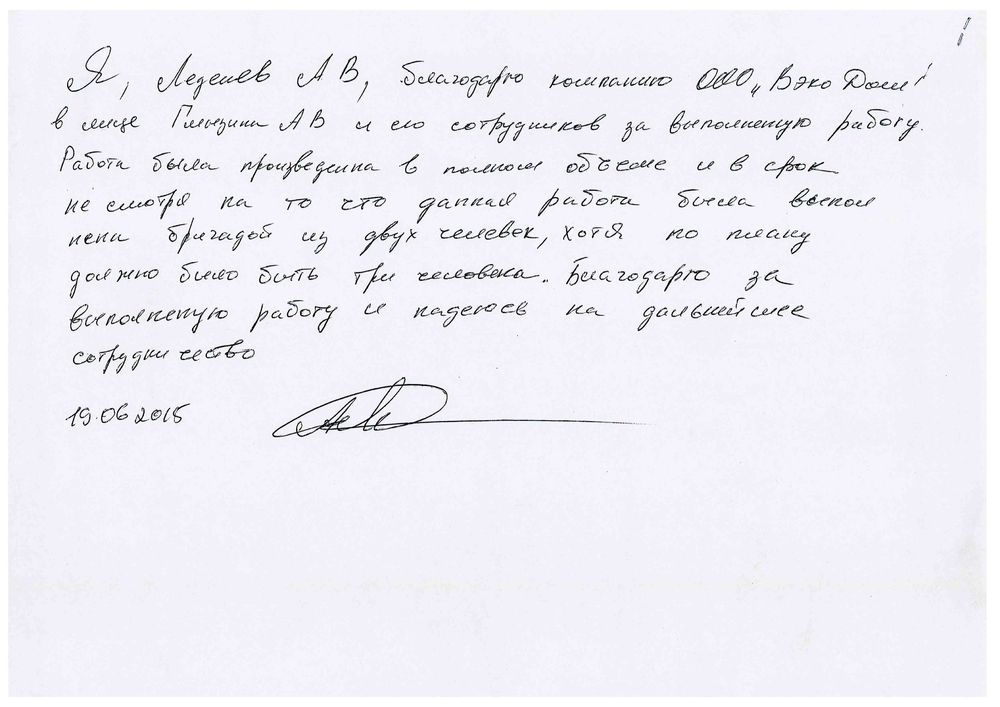 Я, Леденев А В, благодарю компанию ООО „Вэко Дом"
в лице А В и его сотрудников за выполненую работу.
Работа была произведенна в полном объеме и в срок
не смотря на то что данная работа была выпол
нена бригадой из двух человек, хотя по плану
должно было быть три человека. Благодарю за
выполненую работу и надеюсь на дальнейшее
сотрудничество
19.06 2015